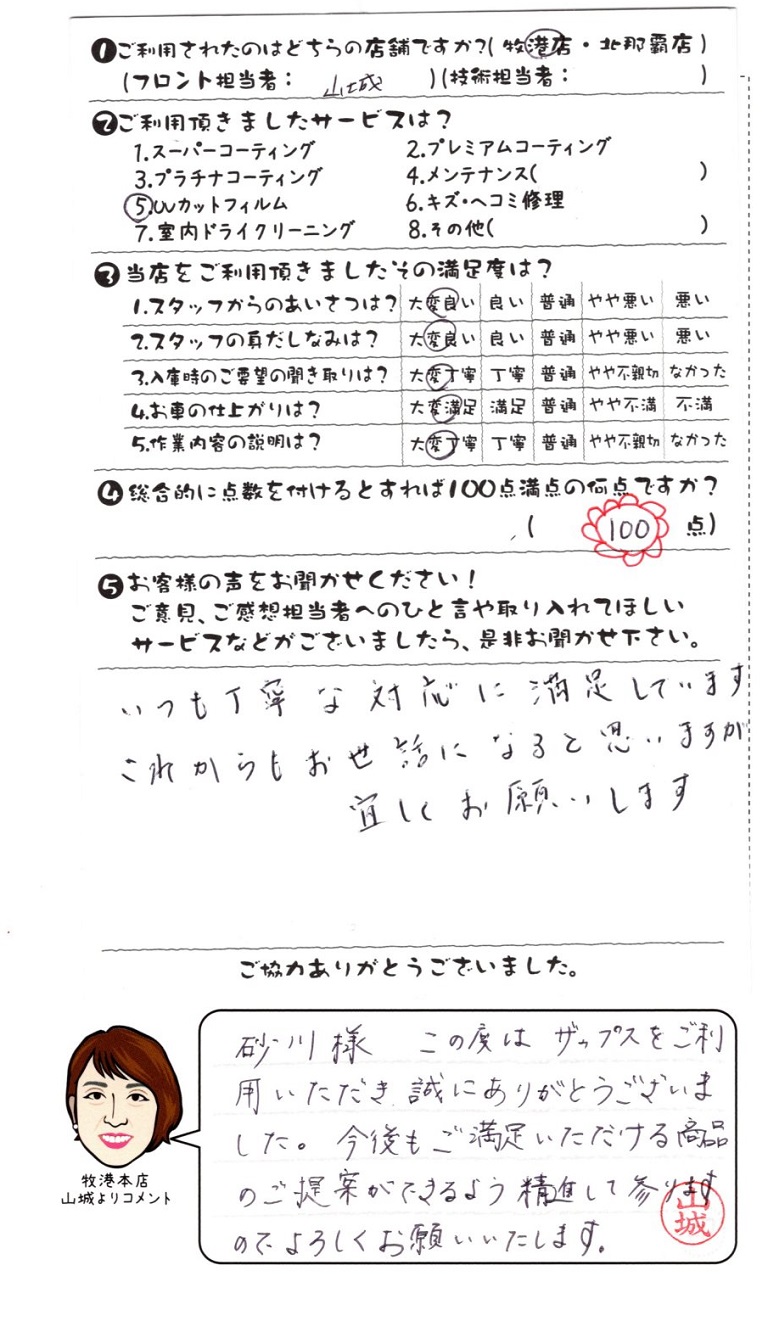 ❶ご利用されたのはどちらの店舗ですか?(牧港店・北那覇店)
(フロント担当者: 山城 )(技術担当者: )
❷ご利用頂きましたサービスは?
1.スーパーコーティング 2.プレミアムコーティング
3.プラチナコーティング 4.メンテナンス( )
5.UVカットフィルム 6.キズ・ヘコミ修理
7.室内ドライクリーニング 8.その他( )
❸当店をご利用頂きましたその満足度は?
1.スタッフからのあいさつは? 大変良い 良い 普通 やや悪い 悪い
2.スタッフの身だしなみは? 大変良い 良い 普通 やや悪い 悪い
3.入庫時のご要望の聞き取りは? 大変丁寧 丁寧 普通 やや不親切 なかった
4.お車の仕上がりは? 大変満足 満足 普通 やや不満 不満
5.作業内容の説明は? 大変丁寧 丁寧 普通 やや不親切 なかった
❹総合的に点数を付けるとすれば100点満点の何点ですか?
( 100 点)
❺お客様の声をお聞かせください!
ご意見、ご感想担当者へのひと言や取り入れてほしい
サービスなどがございましたら、是非お聞かせ下さい。
いつも丁寧な対応に満足しています
これからもお世話になると思いますが
宜しくお願いします
ご協力ありがとうございました。
砂川様 この度はザップスをご利
用いただき誠にありがとうございま
した。今後もご満足いただける商品
のご提案ができるよう精進して参ります
のでよろしくお願いいたします。
山城
牧港本店
山城よりコメント